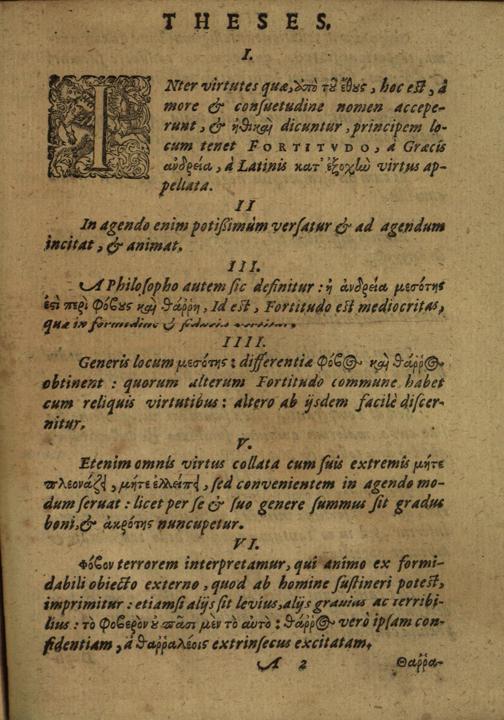 THESES.
I.
INter virtutes quæ, ὑπὸ τοῦ ἔθους, hoc est, à
more & consuetudine nomen accepe-
runt, & ἠθικαὶ dicuntur, principem lo-
cum tenet FORTITVDO, à Græcis
ανδρεία, à Latinis κατ' ἐξοχὴν virtus ap-
pellata.
II
In agendo enim potißimùm versatur & ad agendum
incitat, & animat.
III.
A Philosopho autem sic definitur: ἡ ἀνδρεία μεσότης
ἐστὶ περὶ φόβους καὶ θάρρη, Id est, Fortitudo est mediocritas,
quæ in formidine & fiducia versatur.
IIII.
Generis locum μεσότης: differentiæ φόβος καὶ θάρρος
obtinent: quorum alterum Fortitudo commune habet
cum reliquis virtutibus: altero ab ijsdem facilè discer-
nitur.
V.
Etenim omnis virtus collata cum suis extremis μήτε
πλεονάζει, μήτε ελλείπει, sed convenientem in agendo mo-
dum servat: licet per se & suo genere summus sit gradus
boni, & ἀκρότης nuncupetur.
VI.
Φόβον terrorem interpretamur, qui animo ex formi-
dabili obiecto externo, quod ab homine sustineri potest,
imprimitur: etiamsi alijs sit levius, alijs gravius ac terribi-
lius: τὸ φοβερὸν οὐ πᾶσι μὲν τὸ αὐτὸ: θάρρος verò ipsam con-
fidentiam, à θαρραλέοις extrinsecus excitatam.
A 2 Θαρρα-